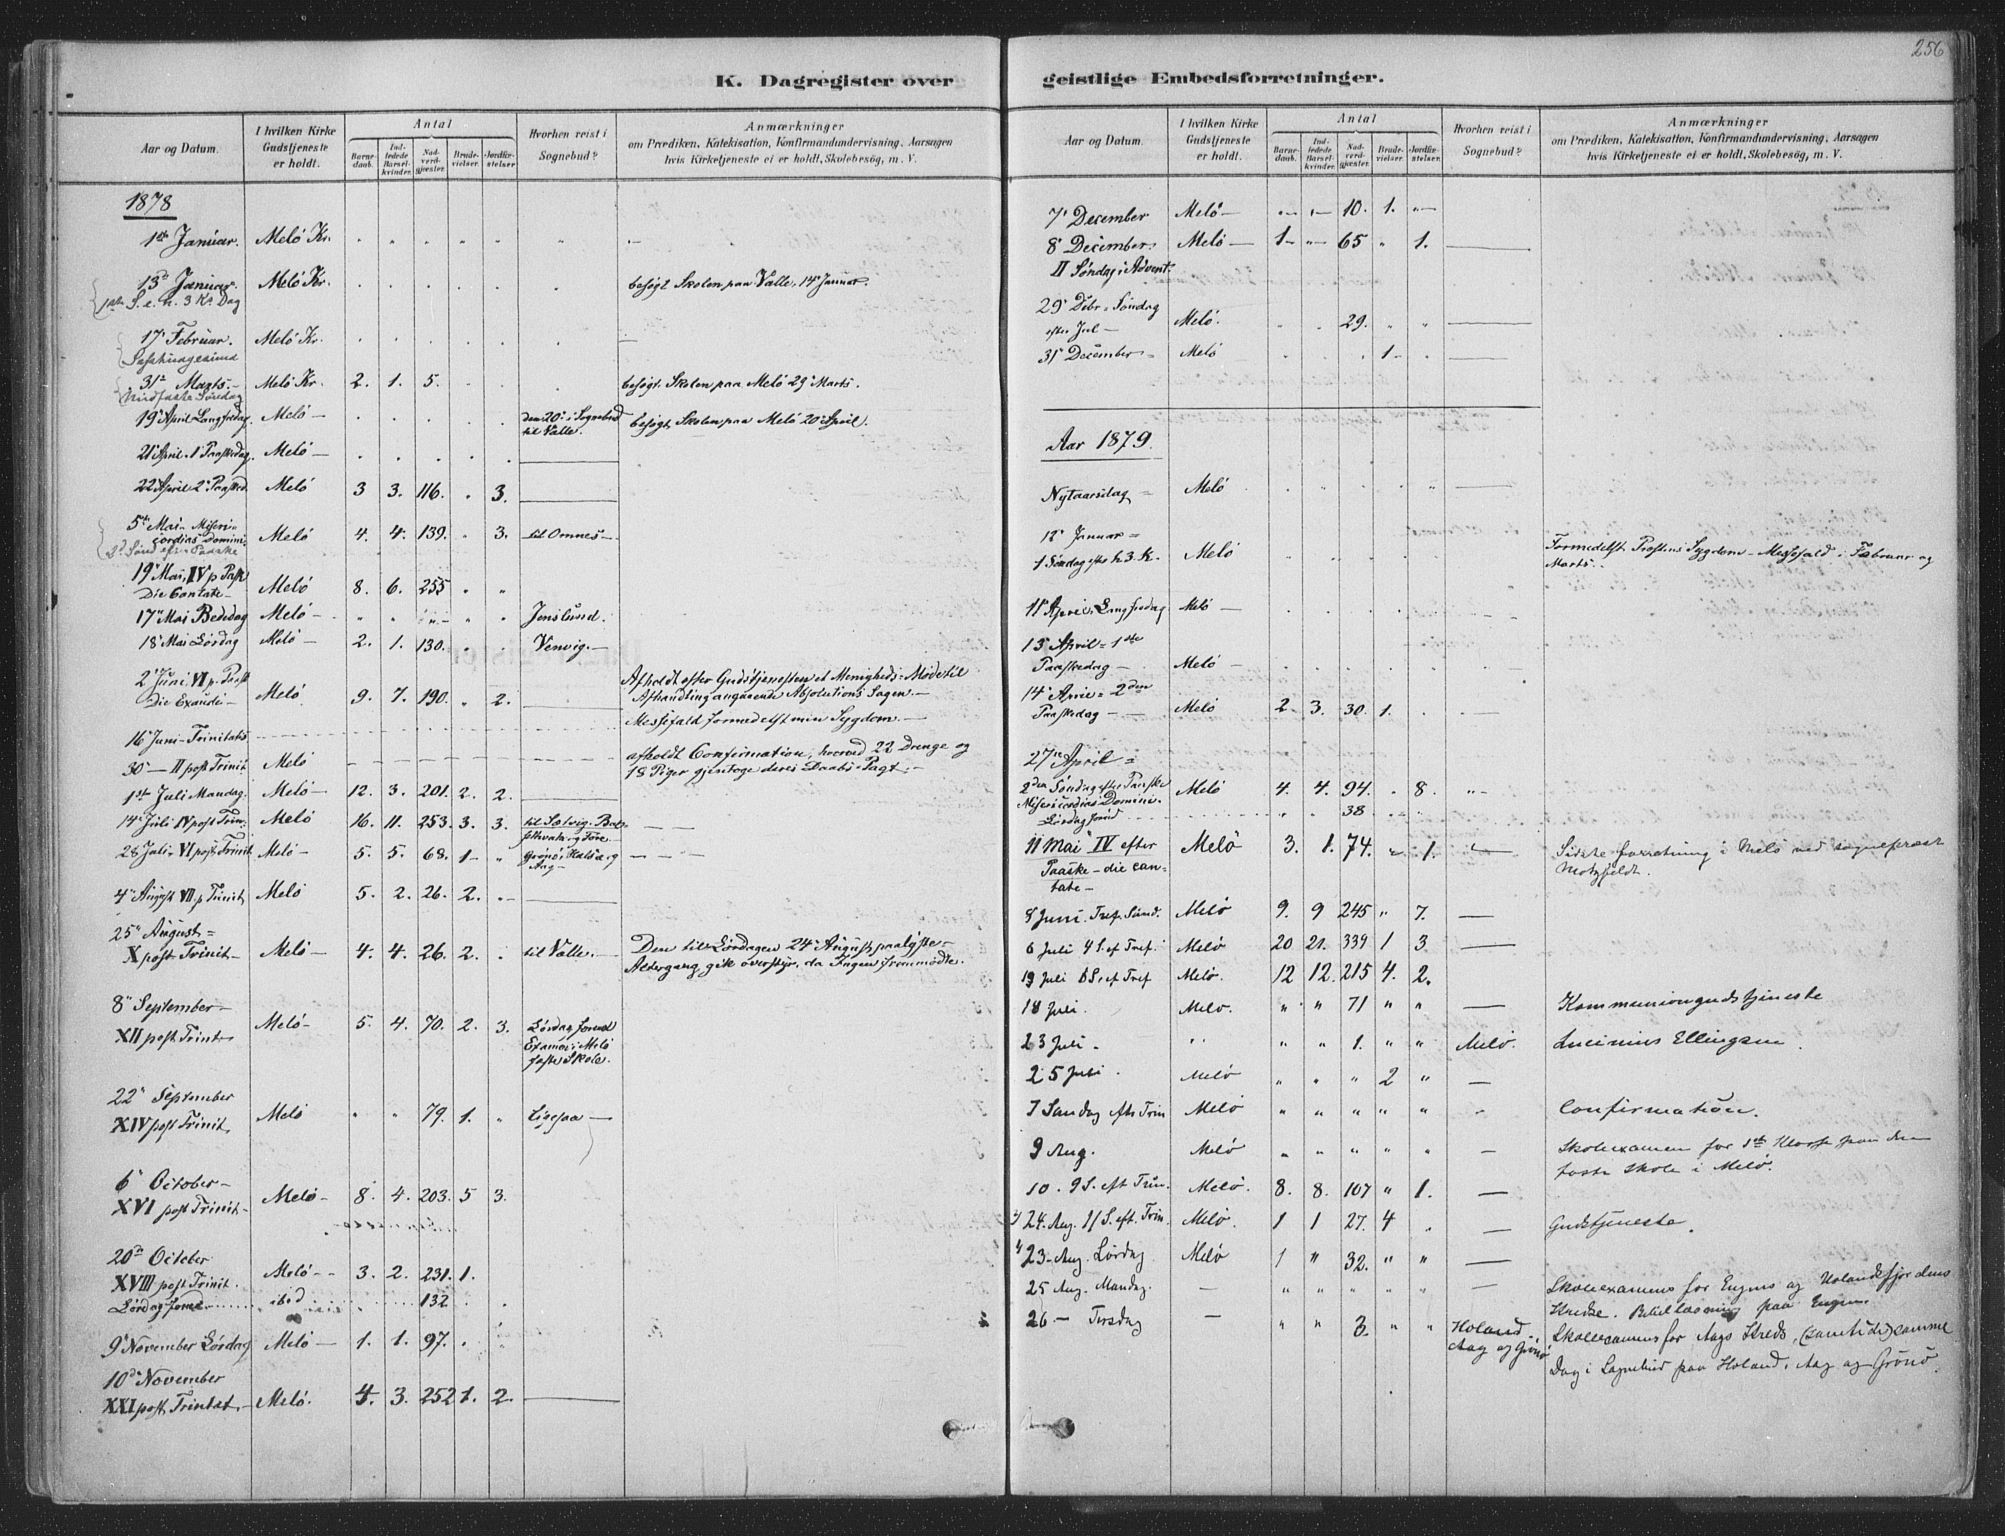 256
K. Dagregister over geistlige Embedsforretninger.
Aar og Datum. I hvilken Kirke Gudstjeneste er holdt. Antal Barnedaab. Indledede Barselkvinder. Nadverdgjæster. Brudevielser. Jordfæstelser. Hvorhen reist i Sognebud? Anmærkninger om Prædiken, Katekisation, Konfirmandundervisning, Aarsagen hvis Kirketjeneste ei er holdt, Skolebesög, m. V.
1878
1ste Januar. Melö Kr.
13de Januar. Melö Kr. besögt Skolen paa Valle, 14de Januar.
1ste S. e. h. 3 K. Dag
17de Februar. Melö Kr.
31te Marts. Melö Kr. 2. 1. 5. besögt Skolen paa Melö 29de Marts.
Midfaste Söndag
19de April Langfredag. Melö den 20de i Sognebud til Valle. besögt Skolen paa Melö 20de April.
21de April 1 Paaskedag. Melö
22de April 2 Paasked. Melö 3 3. 116. 3.
5te Mai Misericordias Domini Melö 4. 4. 139. 3. til Omnes
2d Sönd efter Paaske
19de Mai, IV p. Pask Die Cantate Melö 8. 6. 255
17de Mai Bededag Melö Jenslund.
18de Mai Lördag Melö 2. 1. 130. Venvig.
2den Juni VI p. Pask Die Exaudi Melö 9. 7. 190. 2. Afholdt efter Gudstjenesten et Menigheds-Möde til
Afhandling angaaende Absolutions Sagen.
16de Juni Trinitatis Messefald formedelst min Sygdom.
30 — II post Trinit Melö afholdt Confirmation, hvorved 22 Drenge og
18 Piger gjentoge deres Daabs-Pagt.
1ste Juli Mandag. Melö 12. 3. 201. 2. 2.
14de Juli IV post Trin. Melö 16. 11. 253. 3. 3.
28 Juli VI post Trinit Melö 5. 5. 68. 1
4de August VII p Trinit Melö 5. 2. 26. 2.
25de August
X post Trinit Melö 4. 4. 26. 2. til Valle. Den til Lördagen 24de August paalyste
Altergang gik overstyr, da Ingen fremmödte.
8de September
XII post Trinit Melö 5. 4. 70. 2. 3. Lördag forud Examen i Melö faste Skole.
22de September
XIV post Trinit Melö 79. 1.
6te October
XVI post Trinit Melö 8. 4. 203. 5 3.
20de October
XVIII post Trinit. Melö 3. 2. 231. 1.
Lördag forud ibid 132
9de November Lördag Melö 1. 1. 97.
10de November
XXI post Trinitat Melö. 4. 3. 252 1. 2.
Aar og Datum. I hvilken Kirke Gudstjeneste er holdt. Antal Barnedaab. Indledede Barselkvinder. Nadverdgjæster. Brudevielser. Jordfæstelser. Hvorhen reist i Sognebud? Anmærkninger om Prædiken, Katekisation, Konfirmandundervisning, Aarsagen hvis Kirketjeneste ei er holdt, Skolebesög, m. V.
7de December Melö 10. 1.
8de December Melö 1 65 1.
II Söndag i Advent.
29de Decbr. Söndag efter Jul Melö. 29.
31te December Melö 1
Aar 1879.
Nytaarsdag Melö
12de Januar
1 Söndag efter h. 3. K. Melö Formedelst Provstens Sygdom Messefald i Februar og
Marts.
11te April, Langfredag Melö
13de April 1ste
Paaskedag Melö
14de April 2den
Paaskedag Melö 2 3. 30. 1.
27de April
2den Söndag efter Paaske Melö 4. 4. 94. 8.
Misericordias Domini.
Lördag forud 38
11 Mai IV efter Melö 3. 1. 74. 1. Sidste forretning i Melö ved sognepræst
Paaske - die cantate Motzfeldt.
8 Juni. Tref. Sönd. Melö 9. 9 245 7.
6 Juli 4 S. ef Tref. Melö 20 21. 339 1 3
19 Juli 6 S. ef Tref Melö. 12 12. 215 4. 2.
18 Juli. Melö. 71 Kommuniongudstjeneste
23 Juli. 1. Melö. Lucinius Ellingsen
25 Juli. Melö 2
7 Söndag eft. Trin Melö Confirmation.
9 Aug. Melö Skoleexamen for 1ste Klasse paa den
faste Skole i Melö.
10. 9 S. eft Trin. Melö. 8. 8. 107 1.
24. Aug. 11 S. eft. Trin. Melö. 1 1 27. 4 Gudstjeneste.
23. Aug. Lördag Melö 1 32.
25 Aug. Mandag. Skoleexamens for Engens og Holandsfjordens
Kredse. Bibellæsning paa Engen.
26 — Tirsdag 3. Holand, Aag og Grönö Skoleexamens for Aags Kreds, (samtidig) samme
Dag i Sognebud paa Holand, Aag og Grönö.